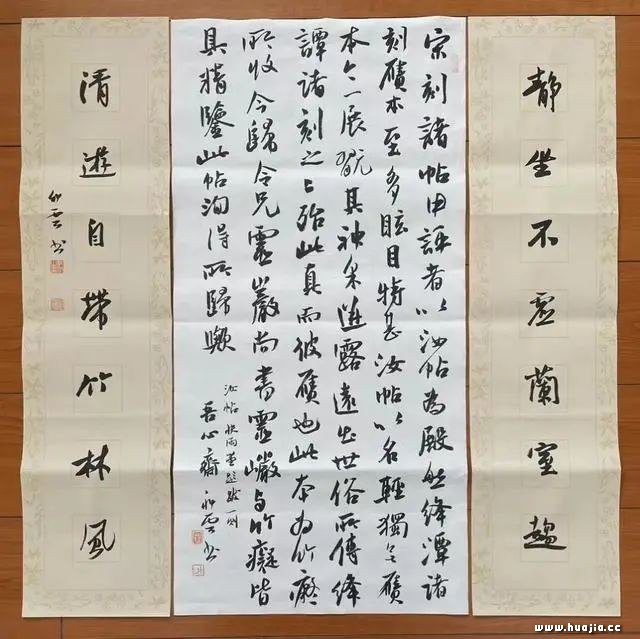 靜坐不虛蘭室趣
宋刻諸帖由評者以汝帖為殿然絳潭諸
刻贋本至多眩目特甚汝帖以名輕獨無贋
本今一展玩其神采迸露遠出世俗所傳絳
譚諸刻之上殆此真而彼贋也此本為竹癡
所收今歸令兄靈巖尚書靈巖与竹癡皆
具精鑒此帖洵得所歸歟
汝帖快雨堂題跋一則
吾心齋 雲書
清遊自帶竹林風
雲書
www.huajia.cc